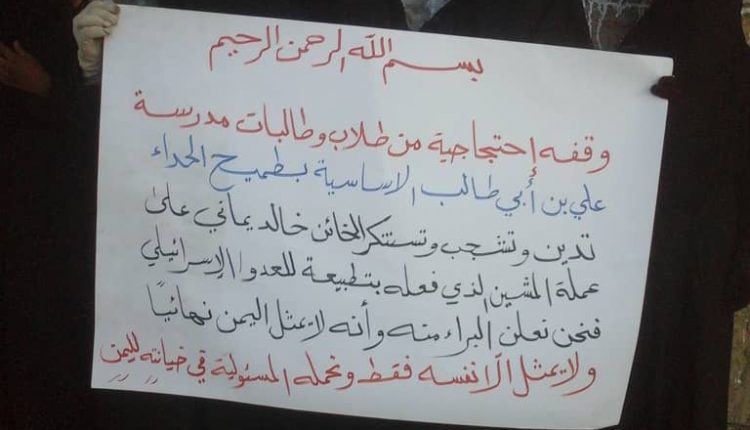 بسم الله الرحمن الرحيم
وقفه إحتجاجية من طلاب وطالبات مدرسة
علي بن أبي طالب الاساسية بطميح الحداء
تدين وتشجب وتستنكر الخائن خالد يماني على
عملة المشين الذي فعله بتطبيعة للعدو الإسرائيلي
فنحن نعلن البراء منه وأنه لا يمثل اليمن نهائياً
ولا يمثل الا نفسه فقط ونحمله المسئولية في خيانته لليمن